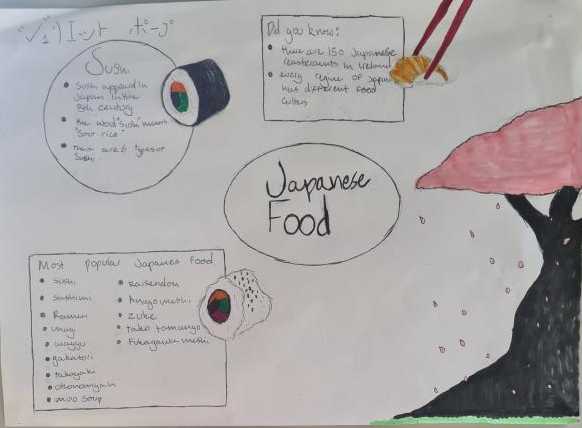 Sushi
• Sushi appeared in
Japan in the
8th century
• the word "sushi" means
"Sour rice"
• There are 6 types of
Sushi
Did you know:
• there are 150 Japanese
restaurants in Ireland
• every region of Japan
has different food
Japanese
Food
Most popular Japanese Food
• Sushi
• Sashimi
• Ramen
• unagi
• wagyu
• yakatori
• takoyaki
• okonomiyaki
• miso soup
• Kaisendon
• Anago meshi
• zuke
• tako tamango
• Fukagawa meshi